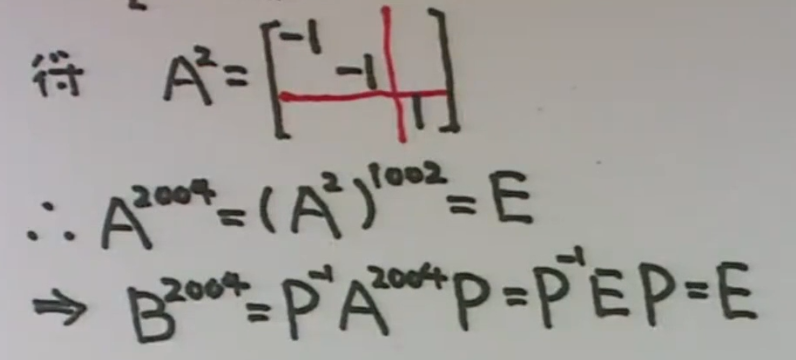 得 A²=[-1 -1 1]
∴ A²⁰⁰⁴=(A²)¹⁰⁰²=E
⇒ B²⁰⁰⁴=P⁻¹A²⁰⁰⁴P=P⁻¹EP=E